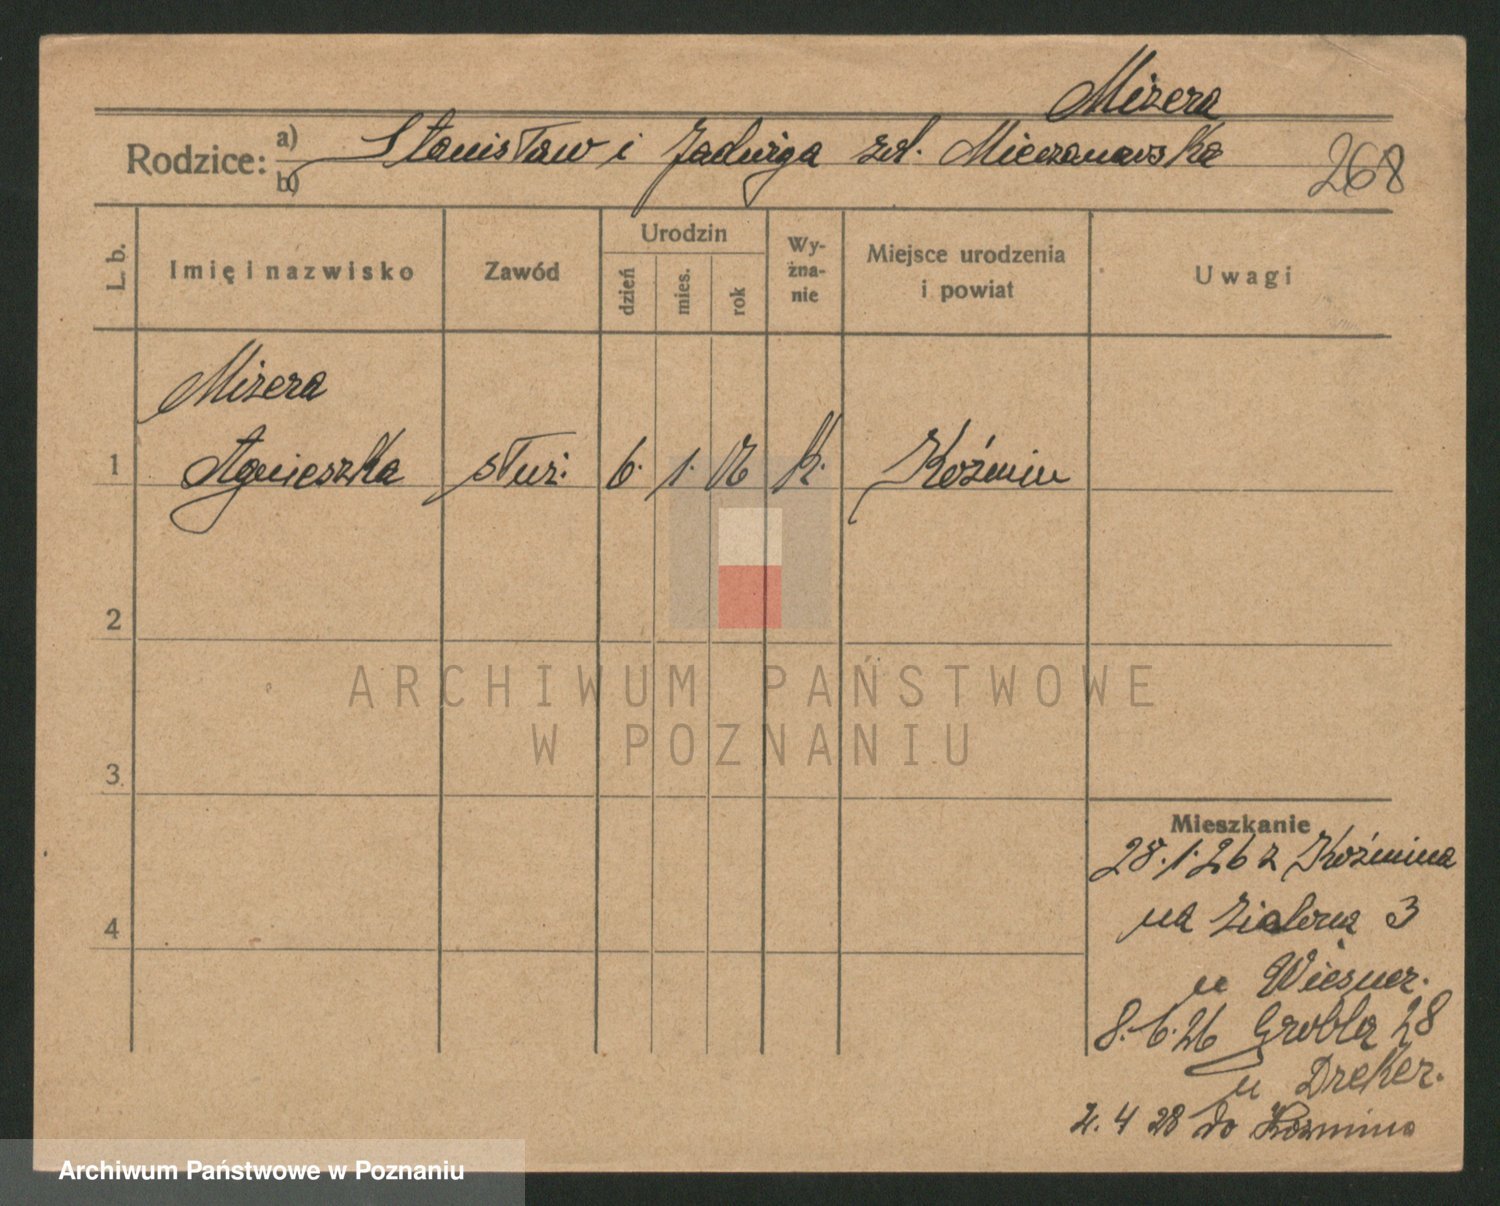 Mizera
Rodzice: a) Stanisław i Jadwiga zd.
b)
268
L. b. Imię i nazwisko Zawód Urodzin dzień mies. rok Wyznanie Miejsce urodzenia i powiat Uwagi
Mizera
1 Agnieszka służ. 6. 1. K. Koźmin
2
3
4
Mieszkanie
28.1.26 z Koźmina
na Zielona 3
u Wiesner.
8.6.26 Grobla 28
u Dreker.
2.4 28 do Kozmina
ARCHIWUM PAŃSTWOWE
W POZNANIU
Archiwum Państwowe w Poznaniu